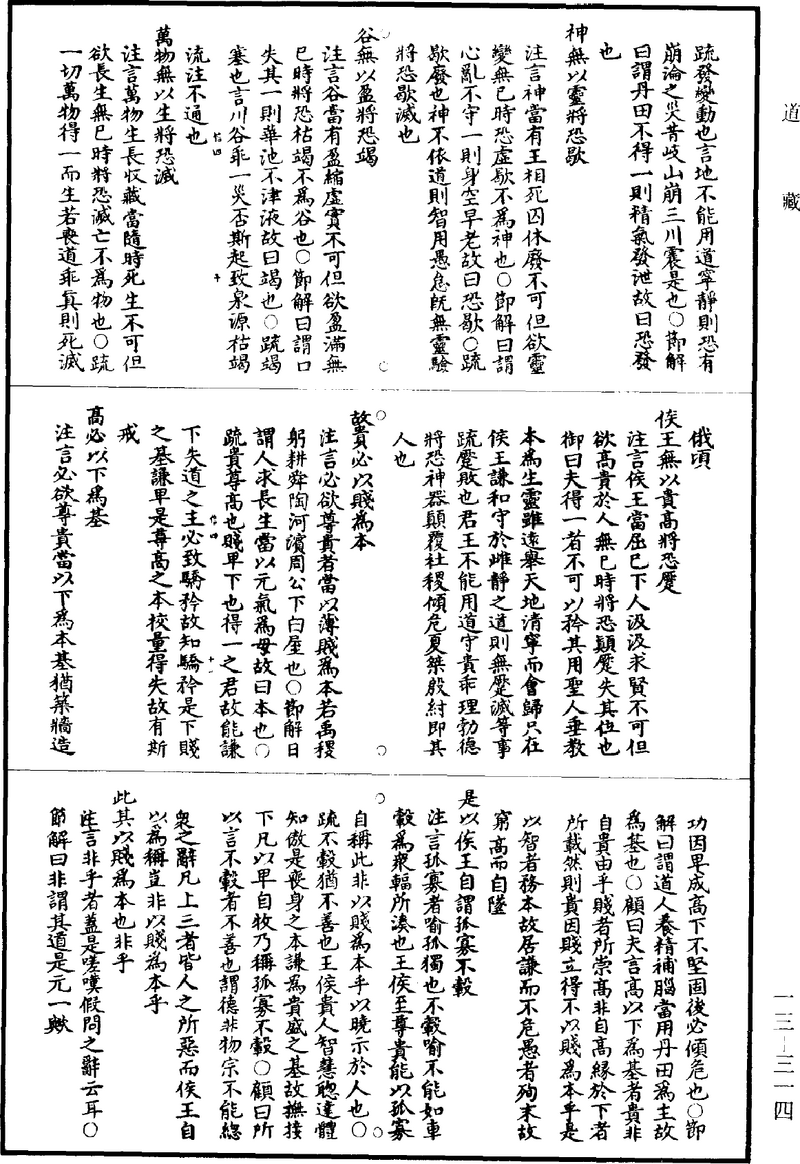 道藏
疏發變動也言地不能用道寧靜則恐有
崩淪之災昔岐山崩三川震是也○節解
曰謂丹田不得一則精氣發泄故曰恐發
也
神無以靈將恐歇
注言神當有王相死囚休廢不可但欲靈
變無已時恐虛歇不為神也○節解曰謂
心亂不守一則身空早老故曰恐歇○疏
歇廢也神不依道則智用愚怠既無靈驗
將恐歇滅也
谷無以盈將恐竭
注言谷當有盈縮虛實不可但欲盈滿無
已時將恐枯竭不為谷也○節解曰謂口
失其一則華池不津液故曰竭也○疏竭
塞也言川谷乖一災否斯起致泉源枯竭
流注不通也
萬物無以生將恐滅
注言萬物生長收藏當隨時死生不可但
欲長生無已時將恐滅亡不為物也○疏
一切萬物得一而生若喪道乖真則死滅
俄頃
侯王無以貴高將恐蹷
注言侯王當屈己下人汲汲求賢不可但
欲高貴於人無已時將恐顛蹷失其位也
御曰夫得一者不可以矜其用聖人垂教
本為生靈雖遠舉天地清寧而會歸只在
侯王謙和守於雌靜之道則無蹷滅等事
疏蹷敗也君王不能用道守貴乖理勃德
將恐神器顛覆社稷傾危夏桀殷紂即其
人也
故貴必以賤為本
注言必欲尊貴者當以薄賤為本若禹稷
躬耕舜陶河濱周公下白屋也○節解曰
謂人求長生當以元氣為母故曰本也○
疏貴尊高也賤卑下也得一之君故能謙
下失道之主必致驕矜故知驕矜是下賤
之基謙卑是尊高之本校量得失故有斯
戒
高必以下為基
注言必欲尊貴當以下為本基猶築牆造
功因卑成高下不堅固後必傾危也○節
解曰謂道人養精補腦當用丹田為主故
為基也○顧曰夫言高以下為基者貴非
自貴由乎賤者所崇高非自高緣於下者
所載然則貴因賤立得不以賤為本乎是
以智者務本故居謙而不危愚者殉末故
窮高而自墜
是以侯王自謂孤寡不轂
注言孤寡者喻孤獨也不轂喻不能如車
轂為衆輻所湊也王侯至尊貴能以孤寡
自稱此非以賤為本乎以曉示於人也○
疏不轂猶不善也王侯貴人智慧聰達體
知傲是喪身之本謙為貴盛之基故撫接
下凡以卑自牧乃稱孤寡不轂○顧曰所
以言不轂者不善也謂德非物宗不能總
衆之辭凡上三者皆人之所惡而侯王自
以為稱豈非以賤為本乎
此其以賤為本也非乎
注言非乎者蓋是嗟嘆假問之辭云耳○
節解曰非謂其道是元一歟
一三—三一四